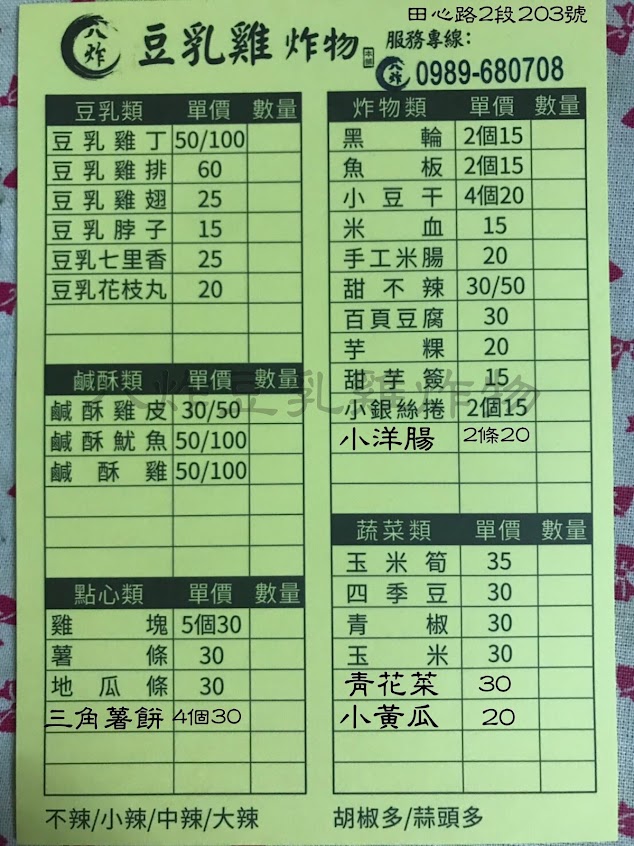 田心路2段203號
八炸 豆乳雞 炸物 本舖
服務專線：
八炸 0989-680708
豆乳類 單價 數量
豆乳雞丁 50/100
豆乳雞排 60
豆乳雞翅 25
豆乳脖子 15
豆乳七里香 25
豆乳花枝丸 20
鹹酥類 單價 數量
鹹酥雞皮 30/50
鹹酥魷魚 50/100
鹹酥雞 50/100
點心類 單價 數量
雞塊 5個30
薯條 30
地瓜條 30
三角薯餅 4個30
不辣/小辣/中辣/大辣
炸物類 單價 數量
黑輪 2個15
魚板 2個15
小豆干 4個20
米血 15
手工米腸 20
甜不辣 30/50
百頁豆腐 30
芋粿 20
甜芋簽 15
小銀絲捲 2個15
小洋腸 2條20
蔬菜類 單價 數量
玉米筍 35
四季豆 30
青椒 30
玉米 30
青花菜 30
小黃瓜 20
胡椒多/蒜頭多
八炸豆乳雞炸物